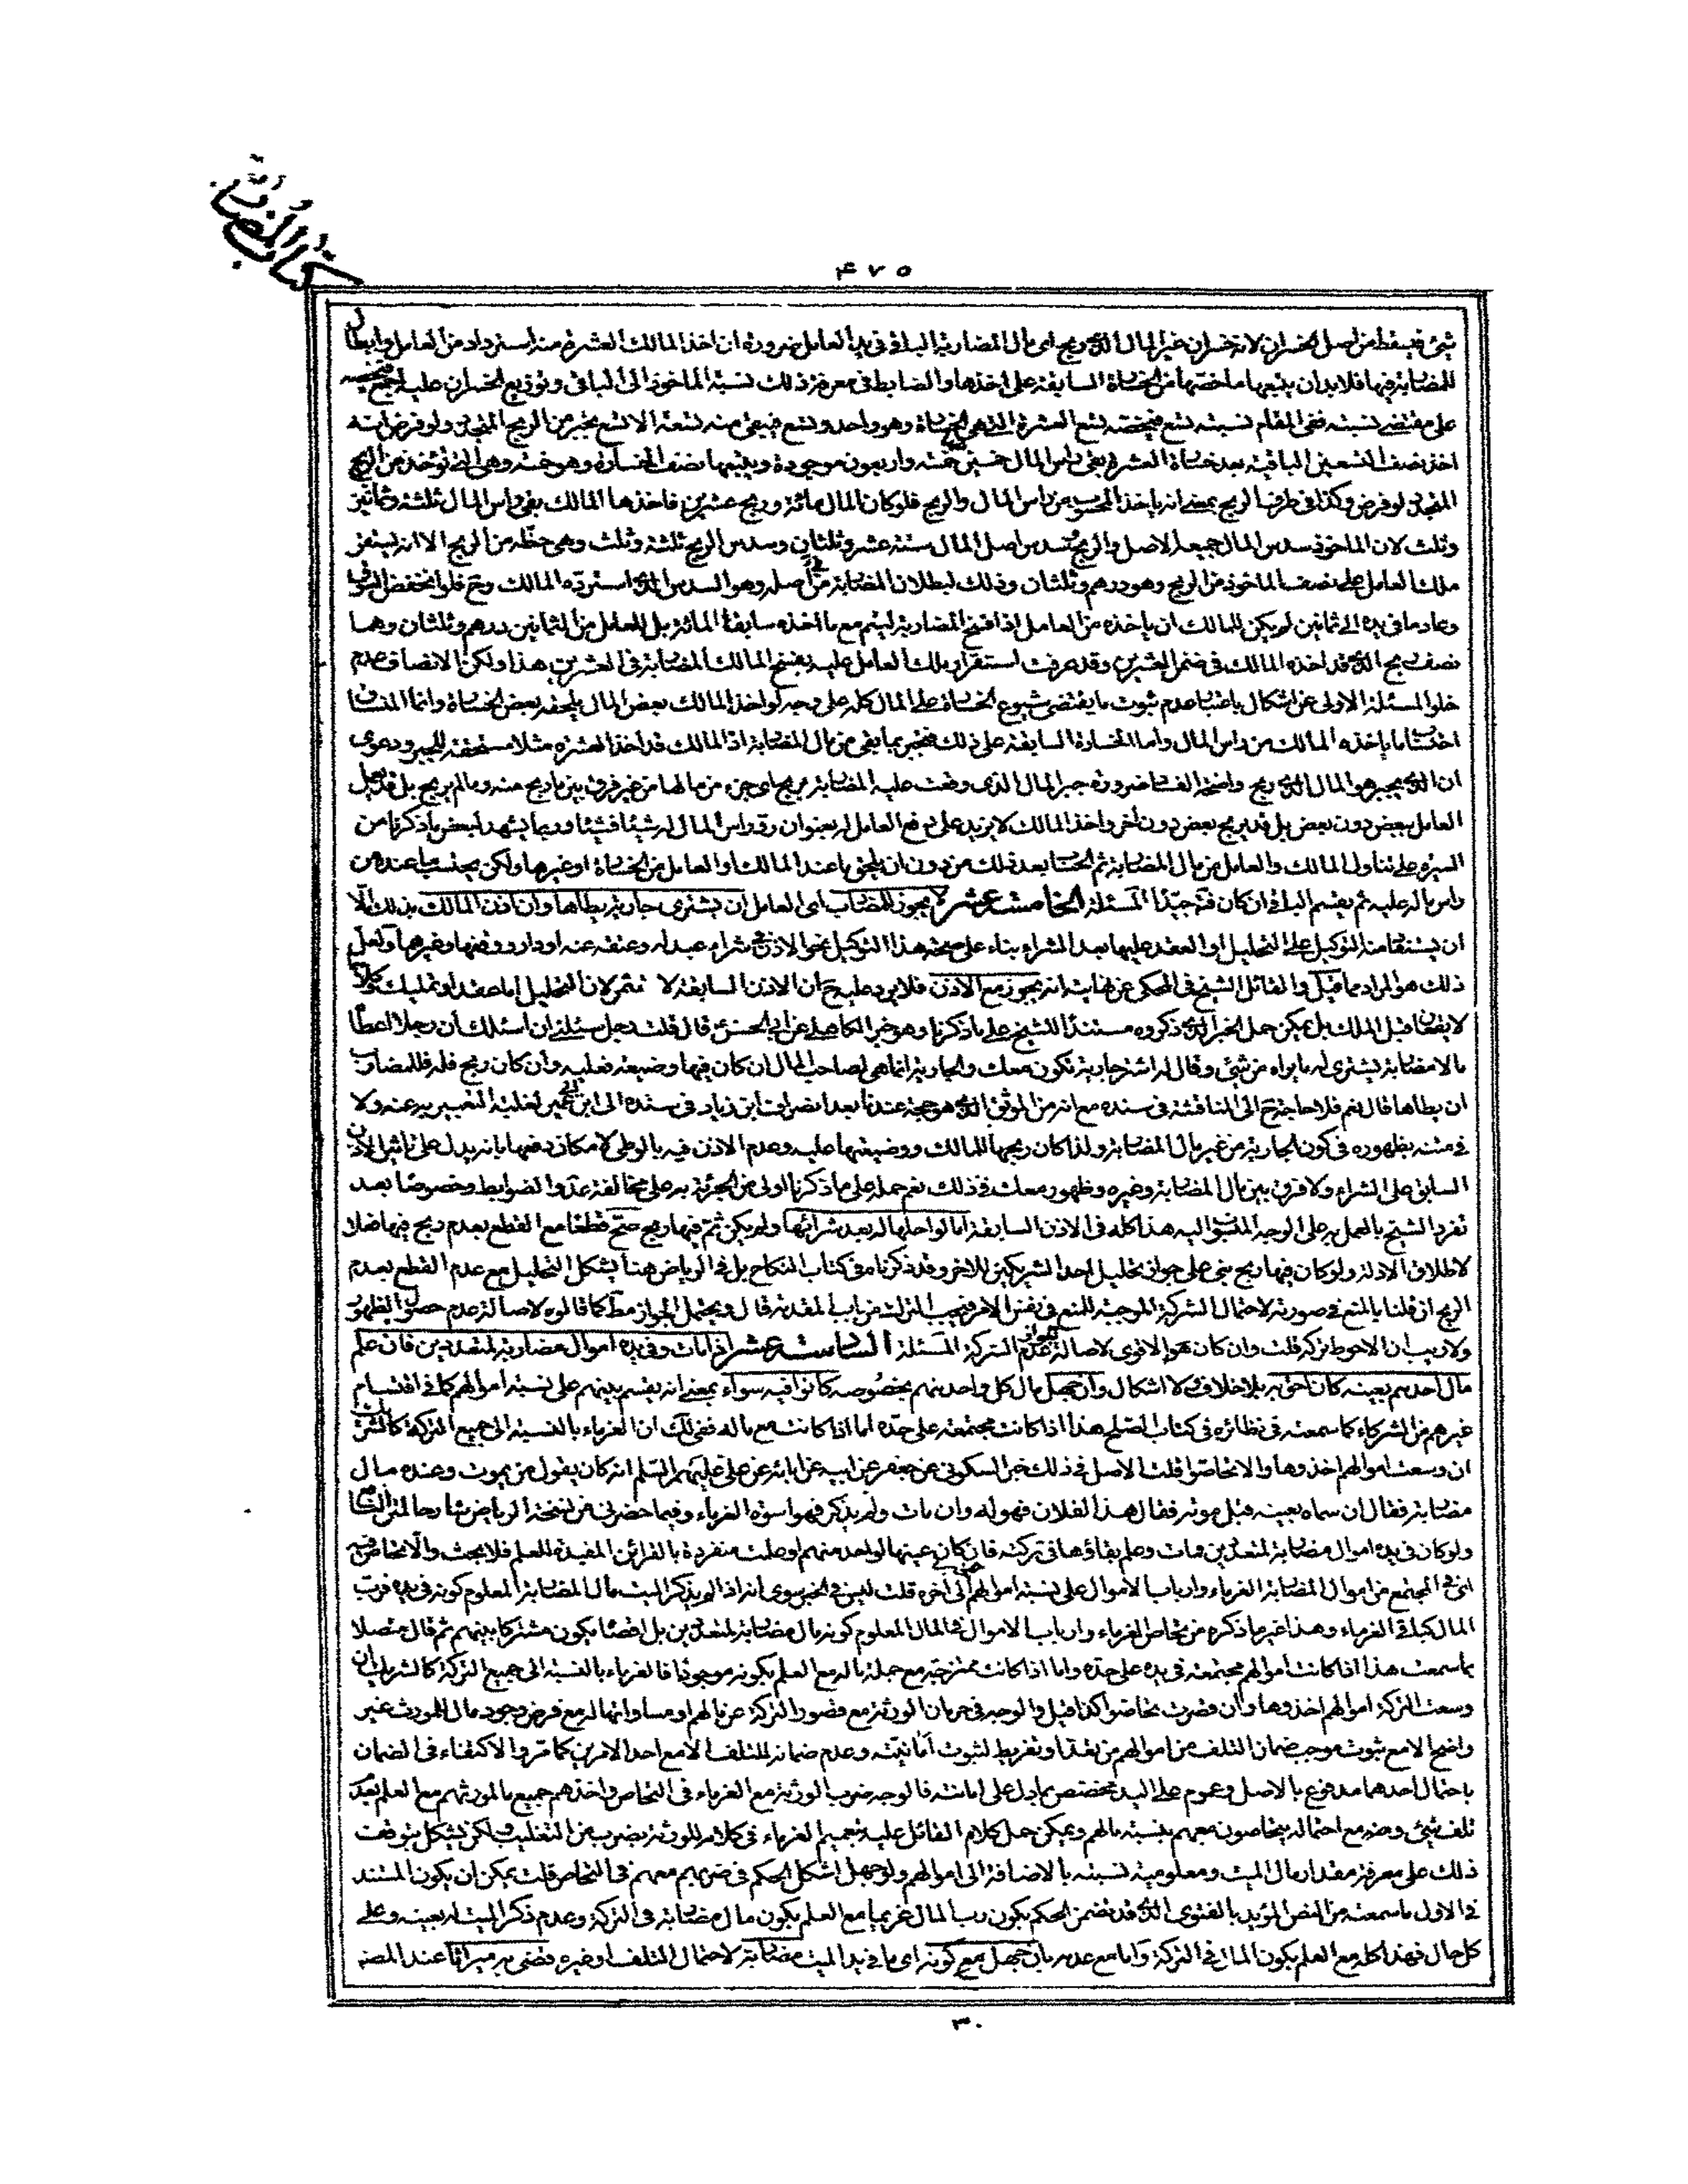 كتاب المضاربة
۴۷۵
شيئ فيسقط من اصل الخسران لانه خسران غير المال الذي ربح اى مال المضاربة الباقى في يد العامل ضرورة ان اخذ المالك العشرة منه استرداد من العامل وابطال
للمضاربة فيها فلا بد ان يتبعها ما خصها من الخسارة السابقة على اخذها والضابط في معرفة ذلك نسبة الماخوذ الى الباقى وتوزيع الخسران عليه اجمع
على مقتضى نسبته ففى المقام نسبته تسع فيخصه تسع العشرة التي هى الخسارة وهو واحد وتسع فيبقى منه تسعة الا تسع يجبر من الربح المتجدد ولو فرض انه
اخذ نصف التسعين الباقية بعد خسارة العشرة بقى راس المال خمسين خمسة واربعون موجودة ويتبعها نصف الخسارة وهو خمسة وهى التي تؤخذ من الربح
المتجدد لو فرض وكذا في طرف الربح بمعنى انه ياخذ المحسوب من راس المال والربح فلو كان المال مائة وربح عشرين فاخذها المالك بقى راس المال ثلثة وثمانين
وثلث لان الماخوذ سدس المال جميعا الاصل والربح فسدس اصل المال ستة عشر وثلثان وسدس الربح ثلثة وثلث وهى حظه من الربح الا انه ليستقر
ملك العامل على نصف الماخوذ من الربح وهو درهم وثلثان وذلك لبطلان المضاربة في اصله وهو السدس الذي استرده المالك وح فلو انخفض السوق
وعاد ما في يده الى ثمانين لم يكن للمالك ان ياخذه من العامل اذا فسخ المضاربة ليتم مع ما اخذه سابقا المائة بل للعامل من الثمانين درهم وثلثان وهما
نصف ربح الذي قد اخذه المالك في ضمن العشرين وقد عرفت استقرار ملك العامل عليه بفسخ المالك المضاربة في العشرين هذا ولكن الانصاف عدم
خلو المسئلة الاولى عن اشكال باعتبار عدم ثبوت ما يقتضى شيوع الخسارة على المال كله على وجه لو اخذ المالك بعض المال يلحقه بعض الخسارة وانما المنساق
احتساب ما ياخذه المالك من راس المال واما الخسارة السابقة على ذلك فتجبر بما بقى من مال المضاربة اذ المالك قد اخذ العشرة مثلا مستحقة للجبر ودعوى
ان الذي يجبر هو المال الذي ربح واضحة الفساد ضرورة جبر المال الذى وقعت عليه المضاربة بربح اى جزء من مالها من غير فرق بين ما ربح منه وما لم يربح بل قد يعمل
العامل ببعض دون بعض بل قد يربح بعض دون آخر واخذ المالك لا يزيد على دفع العامل له بعنوان رد راس المال له شيئا فشيئا وربما يشهد لبعض ما ذكرنا من
السيرة على تناول المالك والعامل من مال المضاربة ثم الحساب بعد ذلك من دون ان يلحق ما عند المالك او العامل من الخسارة او غيرها ولكن يحتسب ما عنده من
راس ماله عليه ثم يقسم الباقى ان كان فتدبر جيدا المسئلة الخامسة عشر لا يجوز للمضارب اى العامل ان يشترى جارية يطاها وان اذن المالك بذلك الا
ان يستفاد منه التوكيل على التحليل او العقد عليها بعد الشراء بناء على صحة هذا التوكيل نحو الاذن في شراء عبد له وعتقه عنه او دار ووقفها وغيرها ولعل
ذلك هو المراد مما قيل والقائل الشيخ في المحكى عن نهايته انه يجوز مع الاذن فلا يرد عليه ح ان الاذن السابقة لا تثمر لان التحليل اما عقد او تمليك وكلاهما
لا يقعان قبل الملك بل يمكن حمل الخبر الذي ذكروه مستندا للشيخ على ما ذكرنا وهو خبر الكاهلى عن ابى الحسن ع قال قلت رجل سئلنى ان اسئلك ان رجلا اعطاه
مالا مضاربة يشترى له ما يراه من شيئ وقال له اشتر جارية تكون معك والجارية انما هى لصاحب المال ان كان فيها وضيعة فعليه وان كان ربح فله فللمضارب
ان يطاها قال نعم فلا حاجة ح الى المناقشة في سنده مع انه من الموثق الذي هو حجة عندنا بعد انصراف ابن زياد في سنده الى ابن ابي عمير لغلبة التعبير به عنه ولا
في متنه بظهوره في كون الجارية من غير مال المضاربة ولذا كان ربحها للمالك ووضيعتها عليه وعدم الاذن فيه بالوطى لامكان دفعها بانه يدل على تاثير الاذن
السابق على الشراء ولا فرق بين مال المضاربة وغيره وظهور معك في ذلك نعم حمله على ما ذكرنا اولى من الجرئة به على مخالفة عدد الضوابط وخصوصا بعد
تفرد الشيخ بالعمل به على الوجه المنسوب اليه هذا كله في الاذن السابقة اما لو احلها له بعد شرائها ولم يكن ثم فيها ربح صح قطعا مع القطع بعدم ربح فيها فضلا
لاطلاق الادلة ولو كان فيها ربح بنى على جواز تحليل احد الشريكين للاخر وقد ذكرناه في كتاب النكاح بل في الرياض هنا يشكل التحليل مع عدم القطع بعدم
الربح ان قلنا بالمنع في صورته لاحتمال الشركة الموجبة للمنع في نفس الامر فيجب الترك من باب المقدمة قال ويحتمل الجواز مط كما قالوه لاصالة عدم حصول الظهور
ولا ريب ان الاحوط تركه قلت وان كان هو الاقوى لاصالة عدم الشركة المسئلة السادسة عشر اذا مات وفى يده اموال مضاربة لمتعددين فان علم
مال احدهم بعينه كان احق به بلا خلاف ولا اشكال وان جهل مال كل واحد منهم بخصوصه كانوا فيه سواء بمعنى انه يقسم بينهم على نسبة اموالهم كما في اقتسام
غيرهم من الشركاء كما سمعته في نظائره في كتاب الصلح هذا اذا كانت مجتمعة على حدة اما اذا كانت مع ماله ففى لك ان الغرماء بالنسبة الى جميع التركة كالشريك
ان وسعت اموالهم اخذوها والا تحاصوا قلت الاصل في ذلك خبر السكونى عن جعفر عن ابيه عن ابائه عن على عليهم السلم انه كان يقول من يموت وعنده مال
مضاربة فقال ان سماه بعينه قبل موته فقال هذا لفلان فهو له وان مات ولم يذكر فهو اسوة الغرماء وفيما حضرنى من نسخة الرياض مازجا لمتن النافع
ولو كان في يده اموال مضاربة لمتعددين فمات وعلم بقاؤها في تركته فان كان عينها لواحد منهم او علمت منفردة بالقرائن المفيدة للعلم فلا بحث والا تحاص فيه
اى في المجتمع من اموال المضاربة الغرماء وارباب الاموال على نسبة اموالهم الى آخره قلت ليس في الخبر سوى انه اذا لم يذكر الميت مال المضاربة المعلوم كونه في يده فرب
المال كباقى الغرماء وهذا غير ما ذكره من تحاص الغرماء وارباب الاموال في المال المعلوم كونه مال مضاربة لمتعددين بل اقصاه يكون مشتركا بينهم ثم قال متصلا
بما سمعت هذا اذا كانت اموالهم مجتمعة في يده على حدة واما اذا كانت ممتزجة مع جملة ماله مع العلم بكونه موجودا فالغرماء بالنسبة الى جميع التركة كالشريك ان
وسعت التركة اموالهم اخذوها وان قصرت تحاصوا كذا قيل والوجه في حرمان الورثة مع قصور التركة عن مالهم او مساواتها له مع فرض وجود مال للمورث غير
واضح الا مع ثبوت موجب ضمان التلف من اموالهم من تعد او تفريط لثبوت امانيته وعدم ضمانه للتلف الا مع احد الامرين كما مر والاكتفاء في الضمان
باحتمال احدهما مدفوع بالاصل وعموم على اليد مختصص بما دل على امانته فالوجه ضرب الورثة مع الغرماء في التحاص واخذهم جميع ما لمورثهم مع العلم بعدم
تلف شيئ وضه مع احتماله يتحاصون معهم بنسبة مالهم ويمكن حمل كلام القائل عليه بتعميم الغرماء في كلامه للورثة بضرب من التغليب ولكن يشكل بتوقف
ذلك على معرفة مقدار مال الميت ومعلومية نسبته بالاضافة الى اموالهم ولو جهل اشكل الحكم في ضربهم معهم في التحاص قلت يمكن ان يكون المستند
في الاول ما سمعته من النص المؤيد بالفتوى الذي قد تضمن الحكم بكون رب المال غريما مع العلم بكون مال مضاربة في التركة وعدم ذكر الميت له بعينه وعلى
كل حال فهذا كله مع العلم بكون المال في التركة واما مع عدمه بان جهل مع كونه اى ما في يد الميت مضاربة لاحتمال التلف او غيره قضى به ميراثا عند المصنف
۳۰